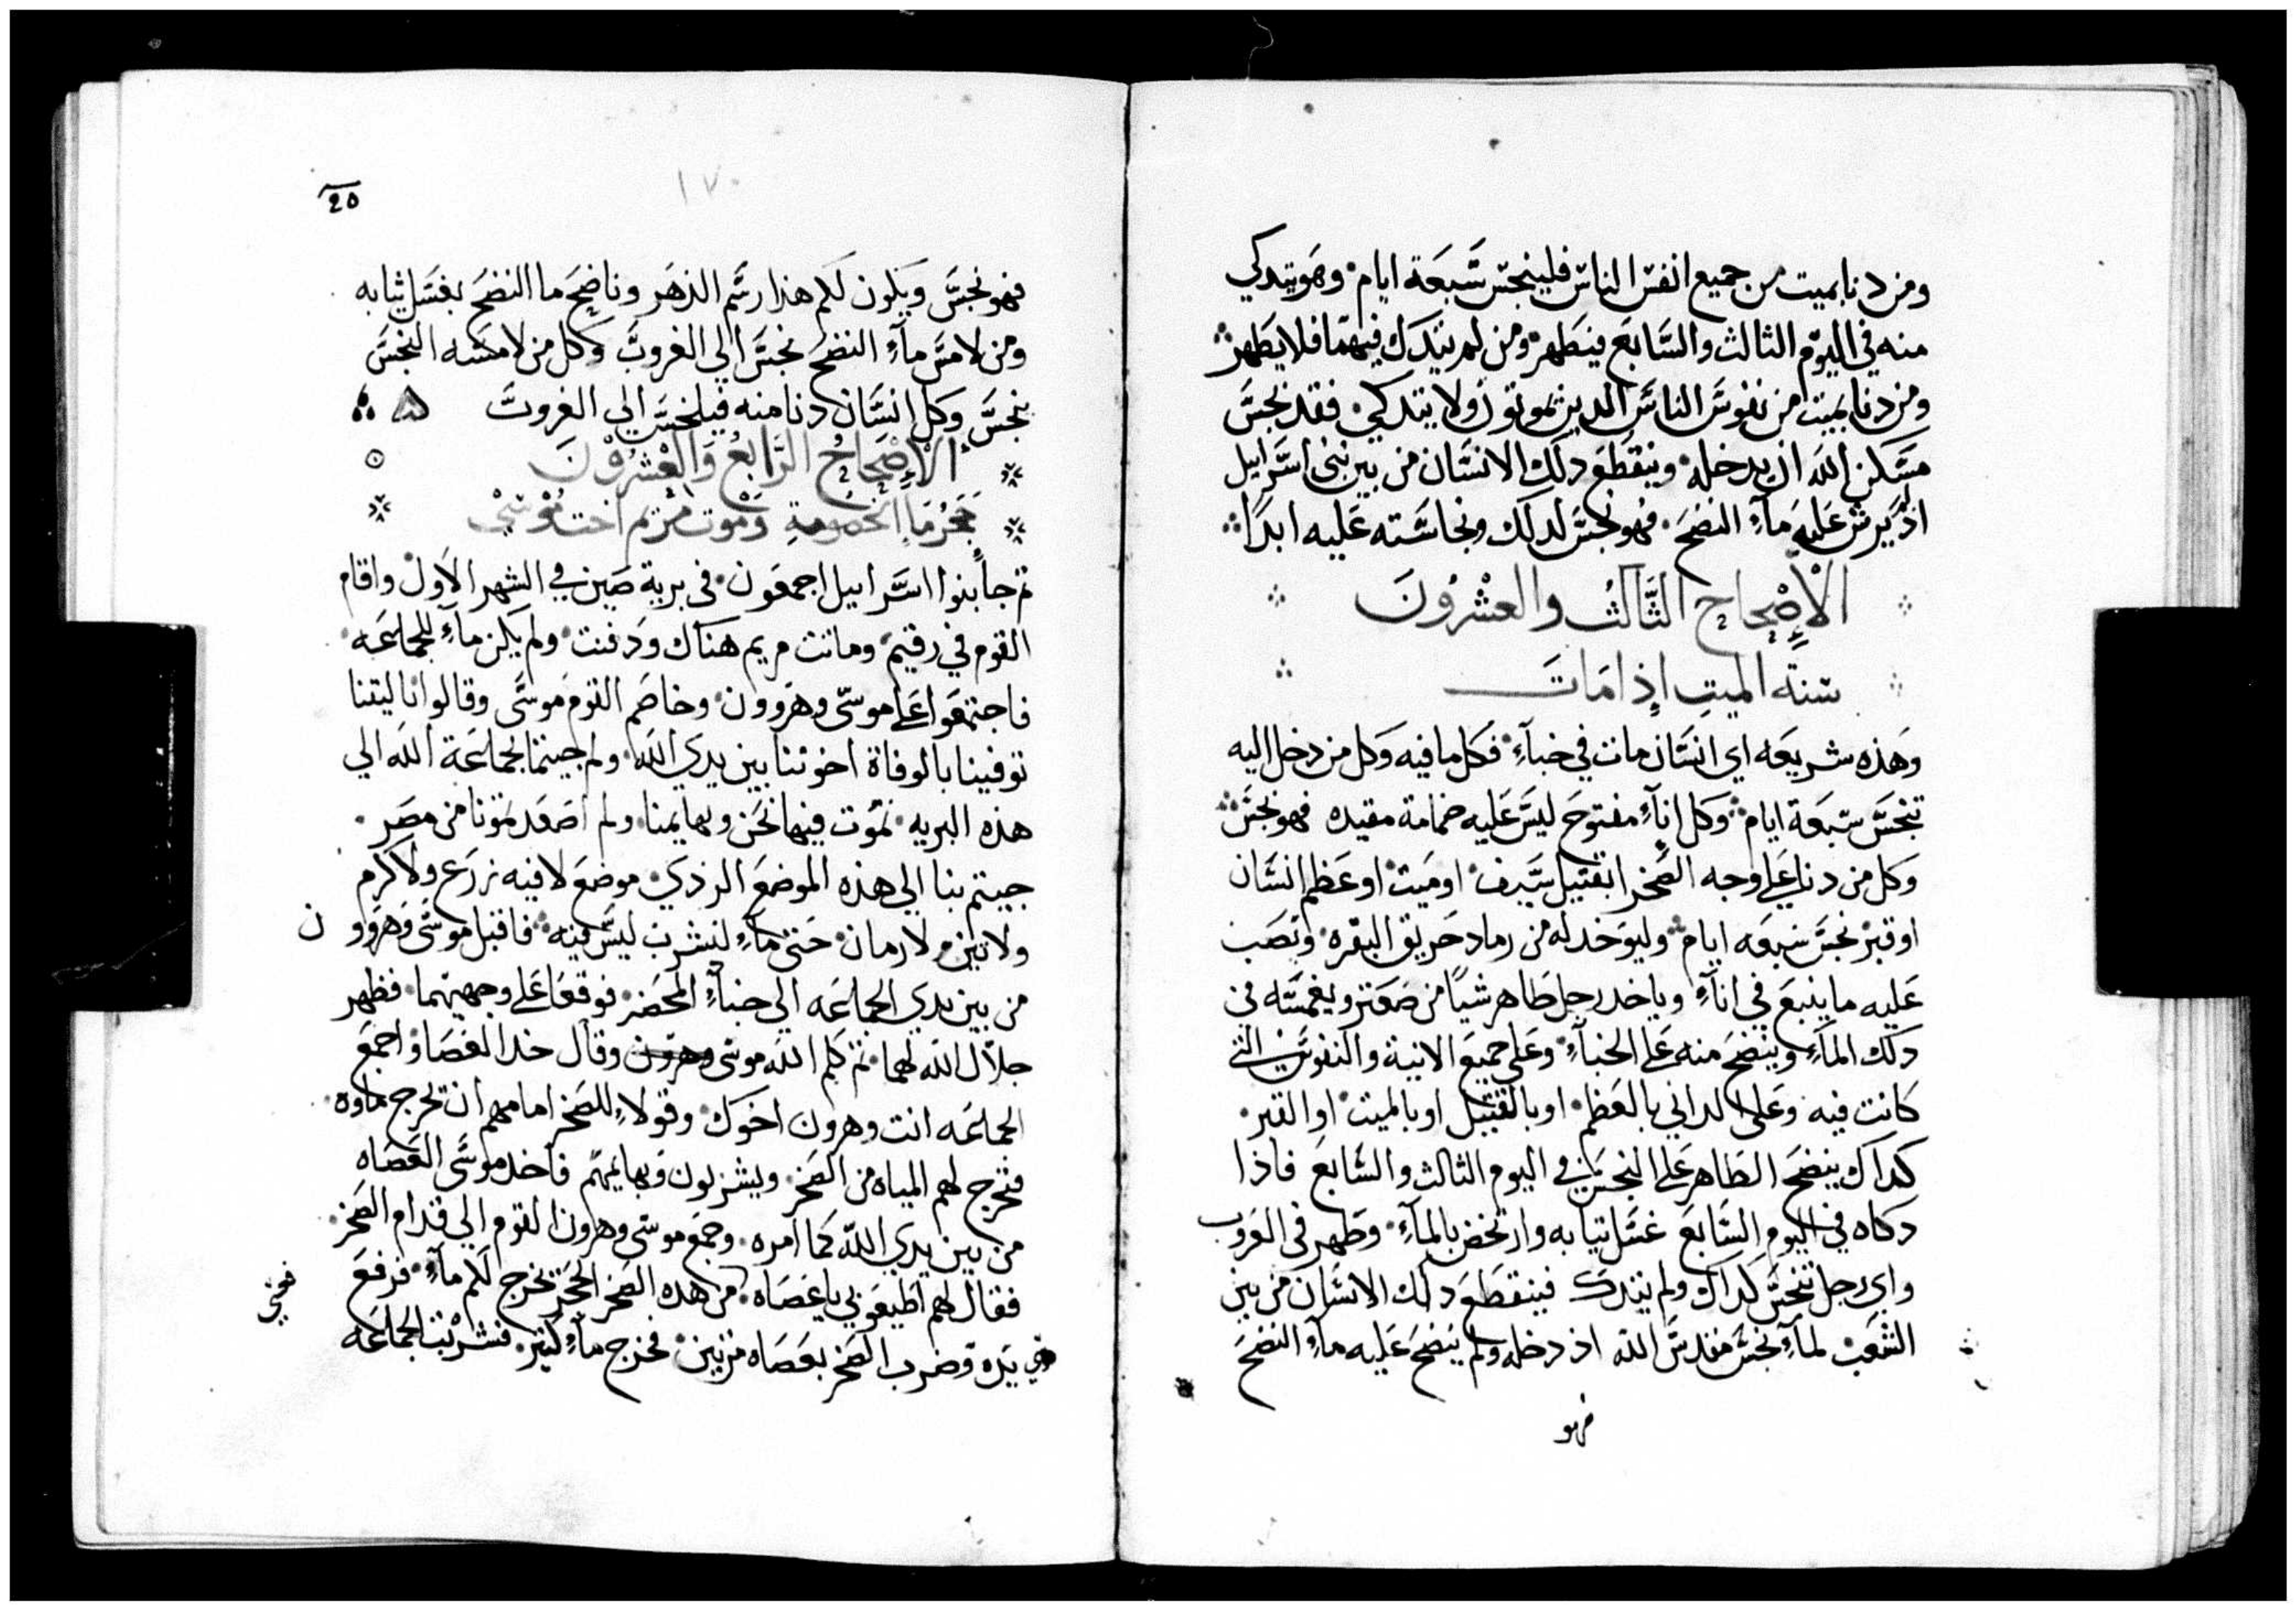 ومن دنا بميت من جميع انفس الناس فلينجس سبعة ايام وهو يتدكي
منه في اليوم الثالث والسابع فيتطهر ومن لم يتدك فيهما فلا يطهر
ومن دنا بميت من نفوس الناس الدين يموتون ولا يتدكي فقد نجس
مسكن الله ان يدخله وينقطع دلك الانسان من بين بني اسراييل
اذ يرش عليه مآء النضح فهو نجس لدلك ونجاسته عليه ابدًا
الإصحاح الثالث والعشرون
سنة الميت إذا مات
وهذه شريعه اي انسان مات في خبآء فكل ما فيه وكل من دخل اليه
تنجس سبعة ايام وكل إنآء مفتوح ليس عليه ضمامة مقيده فهو نجس
وكل من دنا على وجه الصخرا بقتيل سيف او ميت او عظم انسان
او قبر نجس سبعه ايام وليوخد له من رماد حريق البقره ويصب
عليه ما ينبع في انآء وياخد رجل طاهر شياً من صعتر ويغمسه في
دلك المآء وينضح منه على الخبآء وعلى جميع الانية والنفوس التي
كانت فيه وعلى الداني بالعظم او بالقتيل او بالميت او القبر
كداك ينضح الطاهر على النجس في اليوم الثالث والسابع فاذا
دكاه في اليوم السابع غسل تيابه وارتحض بالمآء وطهر في الغروب
واي رجل تنجس كداك ولم يتدك فينقطع دلك الانسان من بين
الشعب لمآء نجس مقدس الله اذ دخله ولم ينضح عليه مآء النضح
فهو
١٧٠
20
فهو نجس ويكون لكم هذا رسم الدهر وناضح ما النضح يغسل ثيابه
ومن لامس مآء النضح نجس الي الغروب وكل من لامسه النجس
نجس وكل انسان دنا منه فيلنجس الي الغروب
الإصحاح الرابع والعشرون
مجرما الخصومة وموت مريم اخت موسي
ثم جا بنوا اسراييل اجمعون في برية صين في الشهر الاول واقام
القوم في رقيم وماتت مريم هناك ودفنت ولم يكن مآء للجماعه
فاجتمعوا على موسى وهروون وخاصم القوم موسى وقالوا ياليتنا
توفينا بالوفاة اخوتنا بين يدي الله ولم جيتما بجماعة الله الي
هذه البريه نموت فيها نحن وبهايمنا ولم اصعدتمونا من مصر
جيتم بنا الي هذه الموضع الردي موضع لا فيه زرع ولا كرم
ولا تين ولا رمان حتى مآء لنشرب ليس فيه فاقبل موسى وهروون
من بين يدي الجماعه الي خبآء المحضر فوقعا على وجهيهما فظهر
جلال الله لهما ثم كلم الله موسى وهرون وقال خدا العصا واجمع
الجماعه انت وهرون اخوك وقولاء للصخر امامهم ان تخرج ماوه
فتخرج لهم المياه من الصخر ويشربون وبهايمهم فاخد موسى العصاه
من بين يدي الله كما امره وجمع موسى وهرون القوم الي قدام الصخر
فقال لهم اطيعوني يا عصاه من هده الصخر الحجر تخرج لكم مآء فرفع
يده وضرب الصخر بعصاه مرتين فخرج مآء كتير فشربت الجماعه